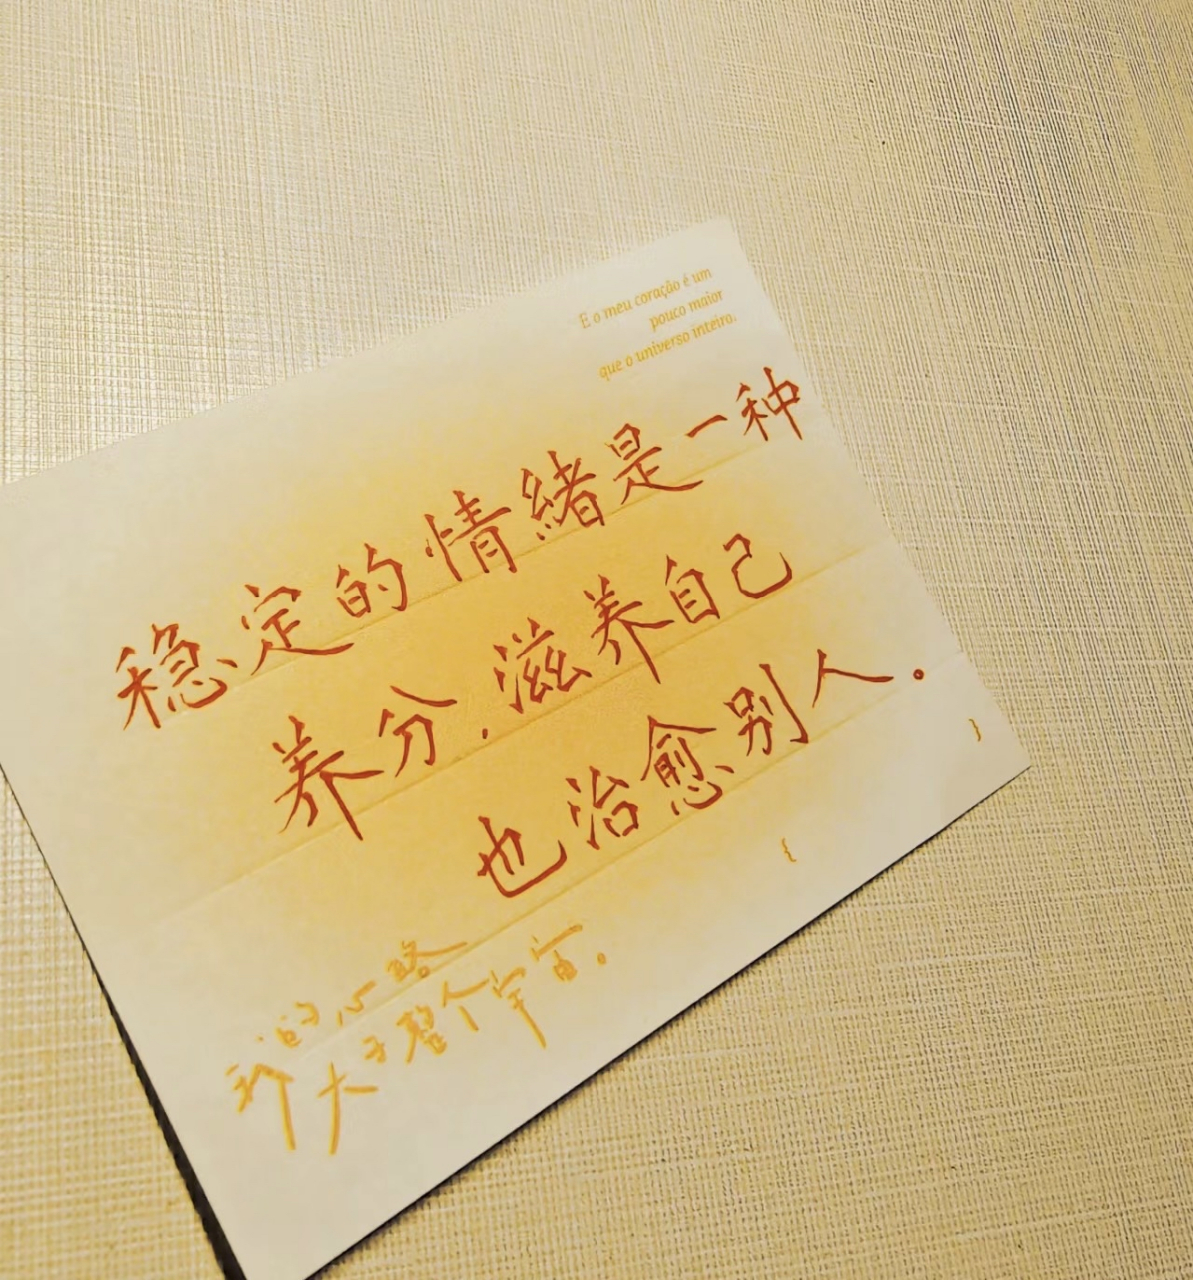 E o meu coração é um
pouco maior
que o universo inteiro.
稳定的情緒是一种
养分,滋养自己
也治愈别人。
{ }
我的心略
大于整个宇宙。